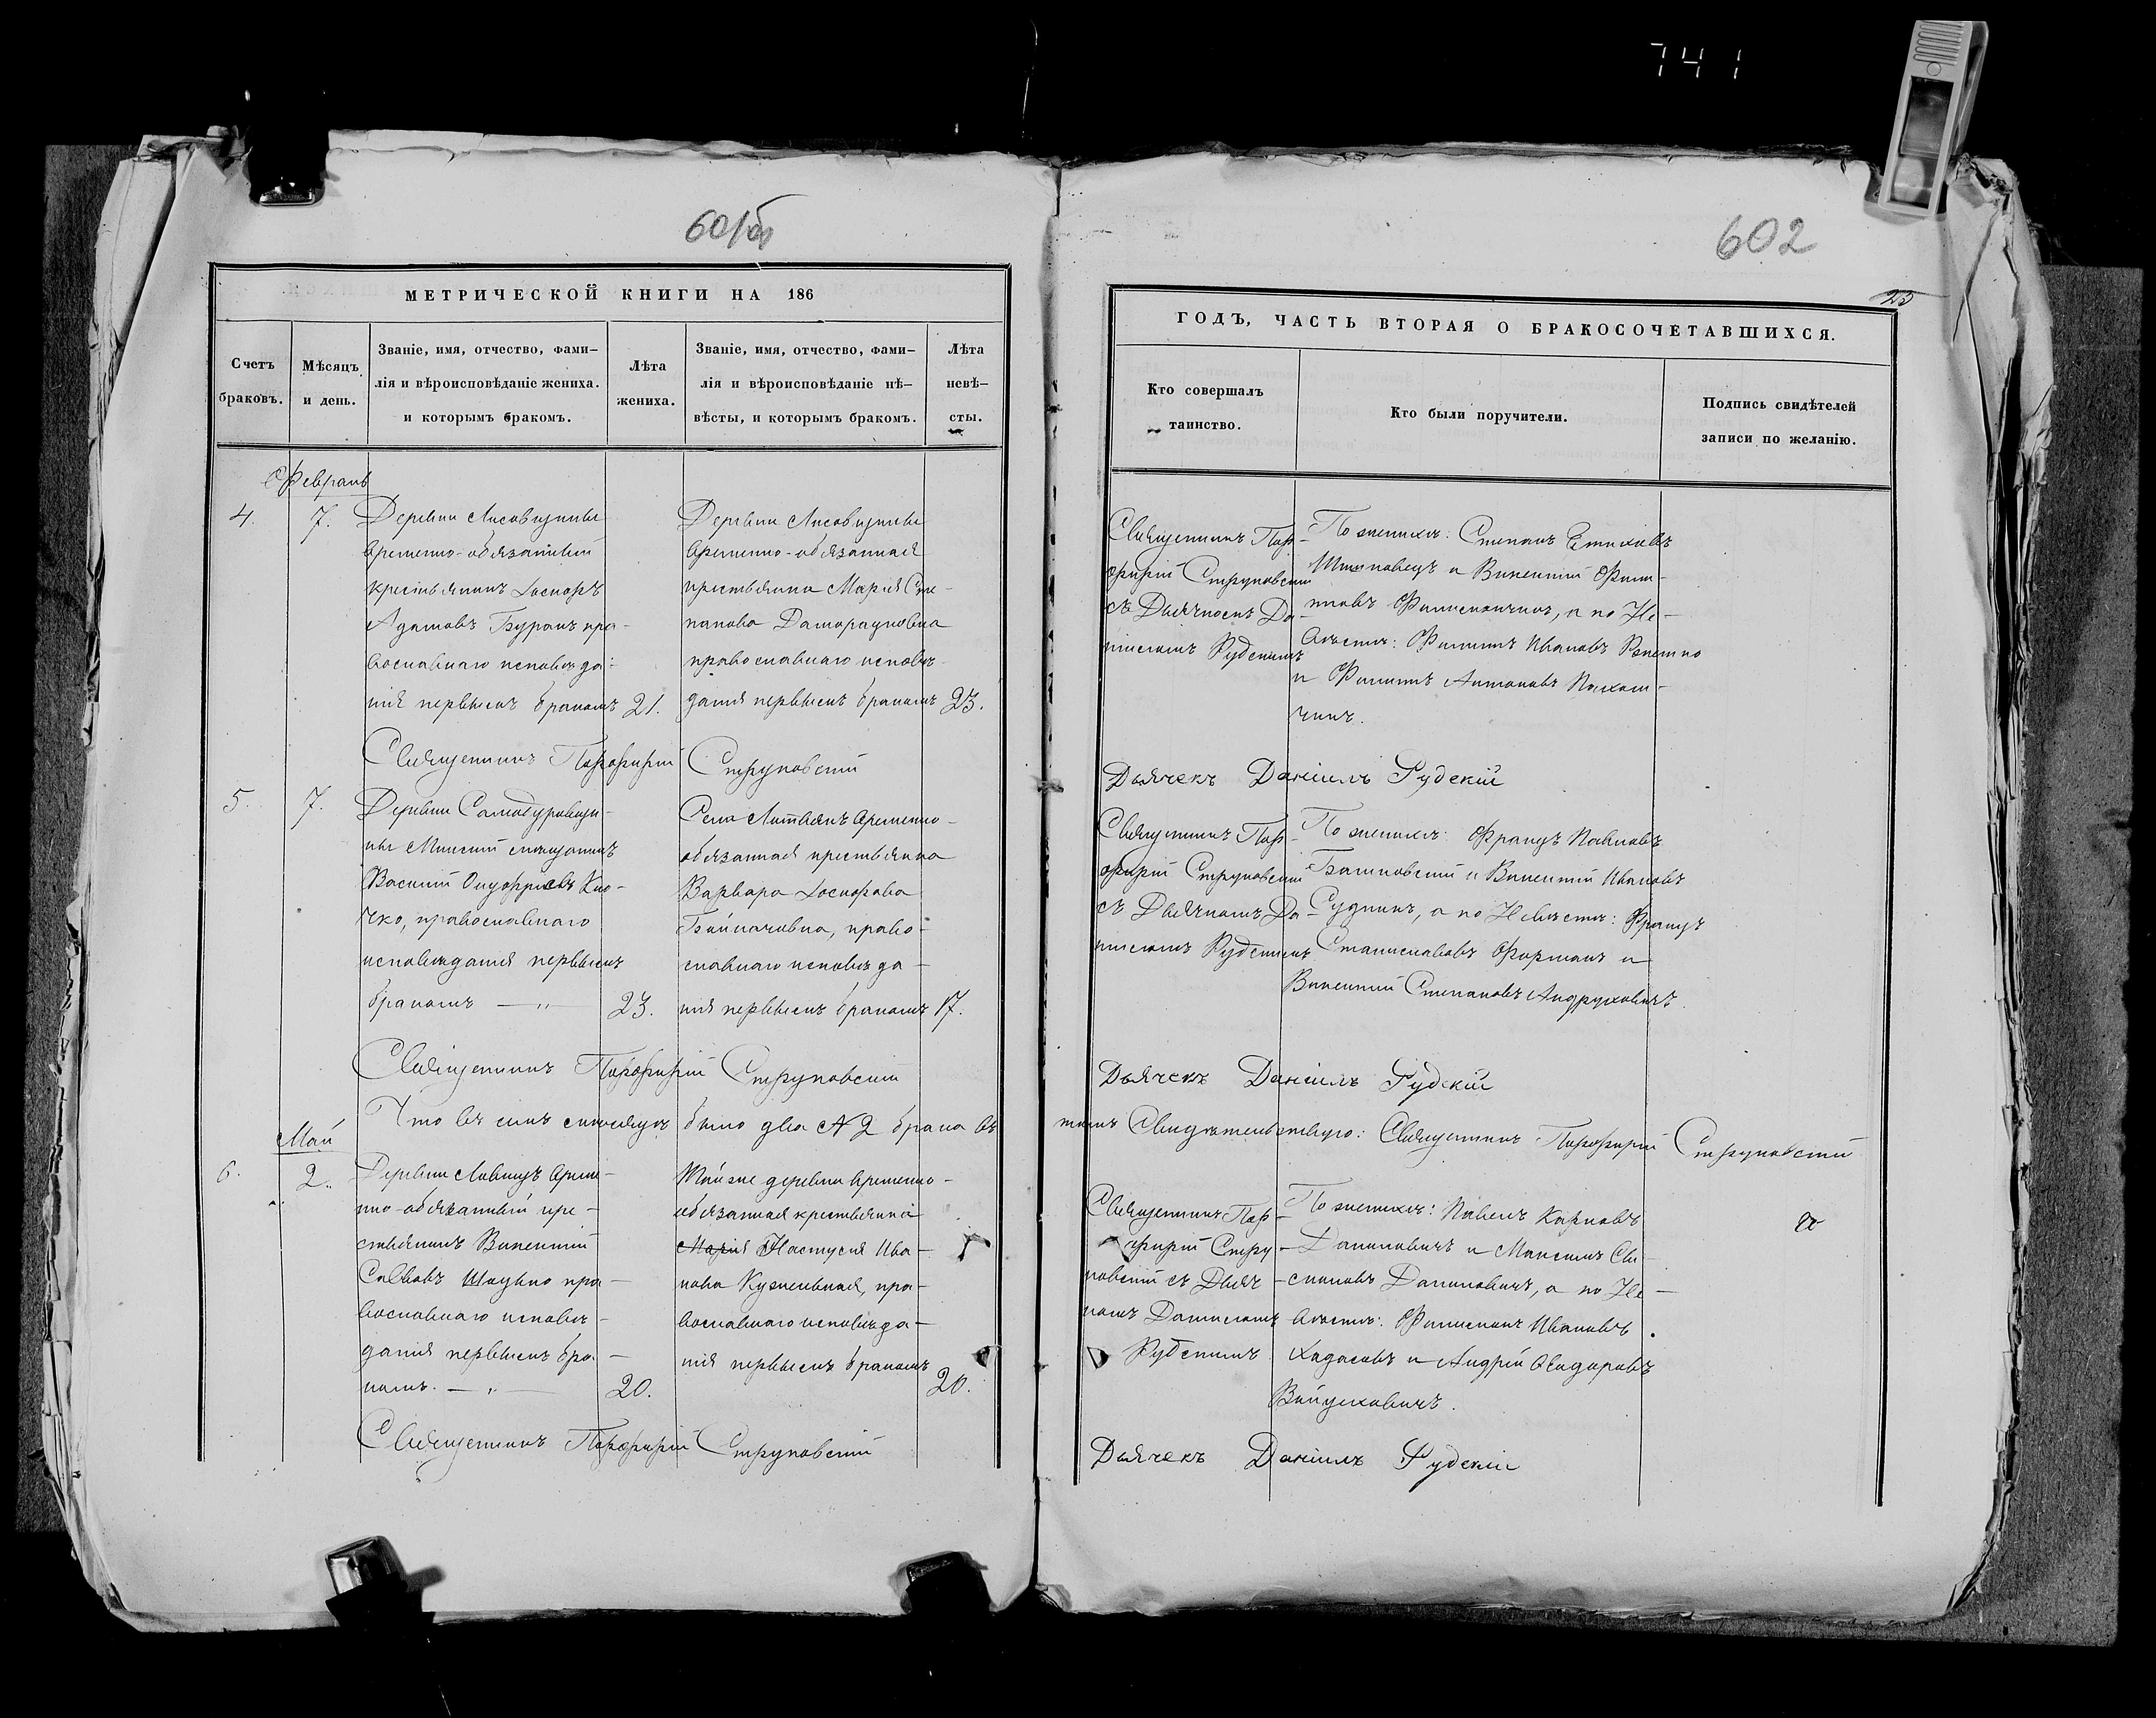 741
601об
602
25
МЕТРИЧЕСКОЙ КНИГИ НА 186
Счетъ браковъ.
Мѣсяцъ и день.
Званіе, имя, отчество, фами-
лія и вѣроисповѣданіе жениха.
и которымъ бракомъ.
Лѣта жениха.
Званіе, имя, отчество, фами-
лія и вѣроисповѣданіе нѣ-
вѣсты, и которымъ бракомъ.
Лѣта
невѣ-
сты.
ГОДЪ, ЧАСТЬ ВТОРАЯ О БРАКОСОЧЕТАВШИХСЯ.
Кто совершалъ
таинство.
Кто были поручители.
Подпись свидѣтелей
записи по желанію.
Февраль
4. 7.
Деревни Лисовщины
временно-обязанный
крестьянинъ
Адамовъ Буракъ пра-
вославнаго исповѣда-
нія первымъ бракомъ 21.
Деревни Лисовщины
временно-обязанная
крестьянка Марія Сте-
панова
православнаго исповѣ-
данія первымъ бракомъ 23.
Священникъ Пор-
фирій Струковскій
съ Дьячкомъ Да-
ніиломъ Рудскимъ
По женихѣ: Степанъ
и Викентій Фили-
повъ а по Не-
вѣстѣ: Филипъ Ивановъ
и Филипъ Антоновъ
Священникъ Порфирій Струковскій
Дьячекъ Даніилъ Рудскій
5. 7.
Деревни
ны Минскій мѣщанинъ
Василій Онуфріевъ Кло-
чко, православнаго
исповѣданія первымъ
бракомъ — „ — 23.
Села Литвянъ временно-
обязанная крестьянка
Варвара
право-
славнаго исповѣда-
нія первымъ бракомъ 17.
Священникъ Пор-
фирій Струковскій
съ Дьячкомъ Да-
ніиломъ Рудскимъ
По женихѣ: Францъ Павловъ
и Викентій Ивановъ
а по Невѣстѣ: Францъ
Станиславовъ Фурманъ и
Викентій Степановъ Андруховичъ.
Священникъ Порфирій Струковскій
Дьячекъ Даніилъ Рудскій
Что въ семъ мѣсяцѣ было два № 2 брака въ
томъ Свидѣтельствую: Священникъ Порфирій Струковскій
Май
6. 2.
Деревни време-
нно-обязанный кре-
стьянинъ Викентій
Саввовъ пра-
вославнаго исповѣ-
данія первымъ бра-
комъ. — „ — 20.
Той же деревни временно-
обязанная крестьянка
Марія Настусія Ива-
нова пра-
вославнаго исповѣда-
нія первымъ бракомъ 20.
Священникъ Пор-
фирій Стру-
ковскій съ Дьяч-
комъ Даніиломъ
Рудскимъ
По женихѣ: Павелъ Карповъ
Даниловичъ и Максимъ
Даниловичъ, а по Не-
вѣстѣ: Ивановъ
и Андрей
Священникъ Порфирій Струковскій
Дьячекъ Даніилъ Рудскій